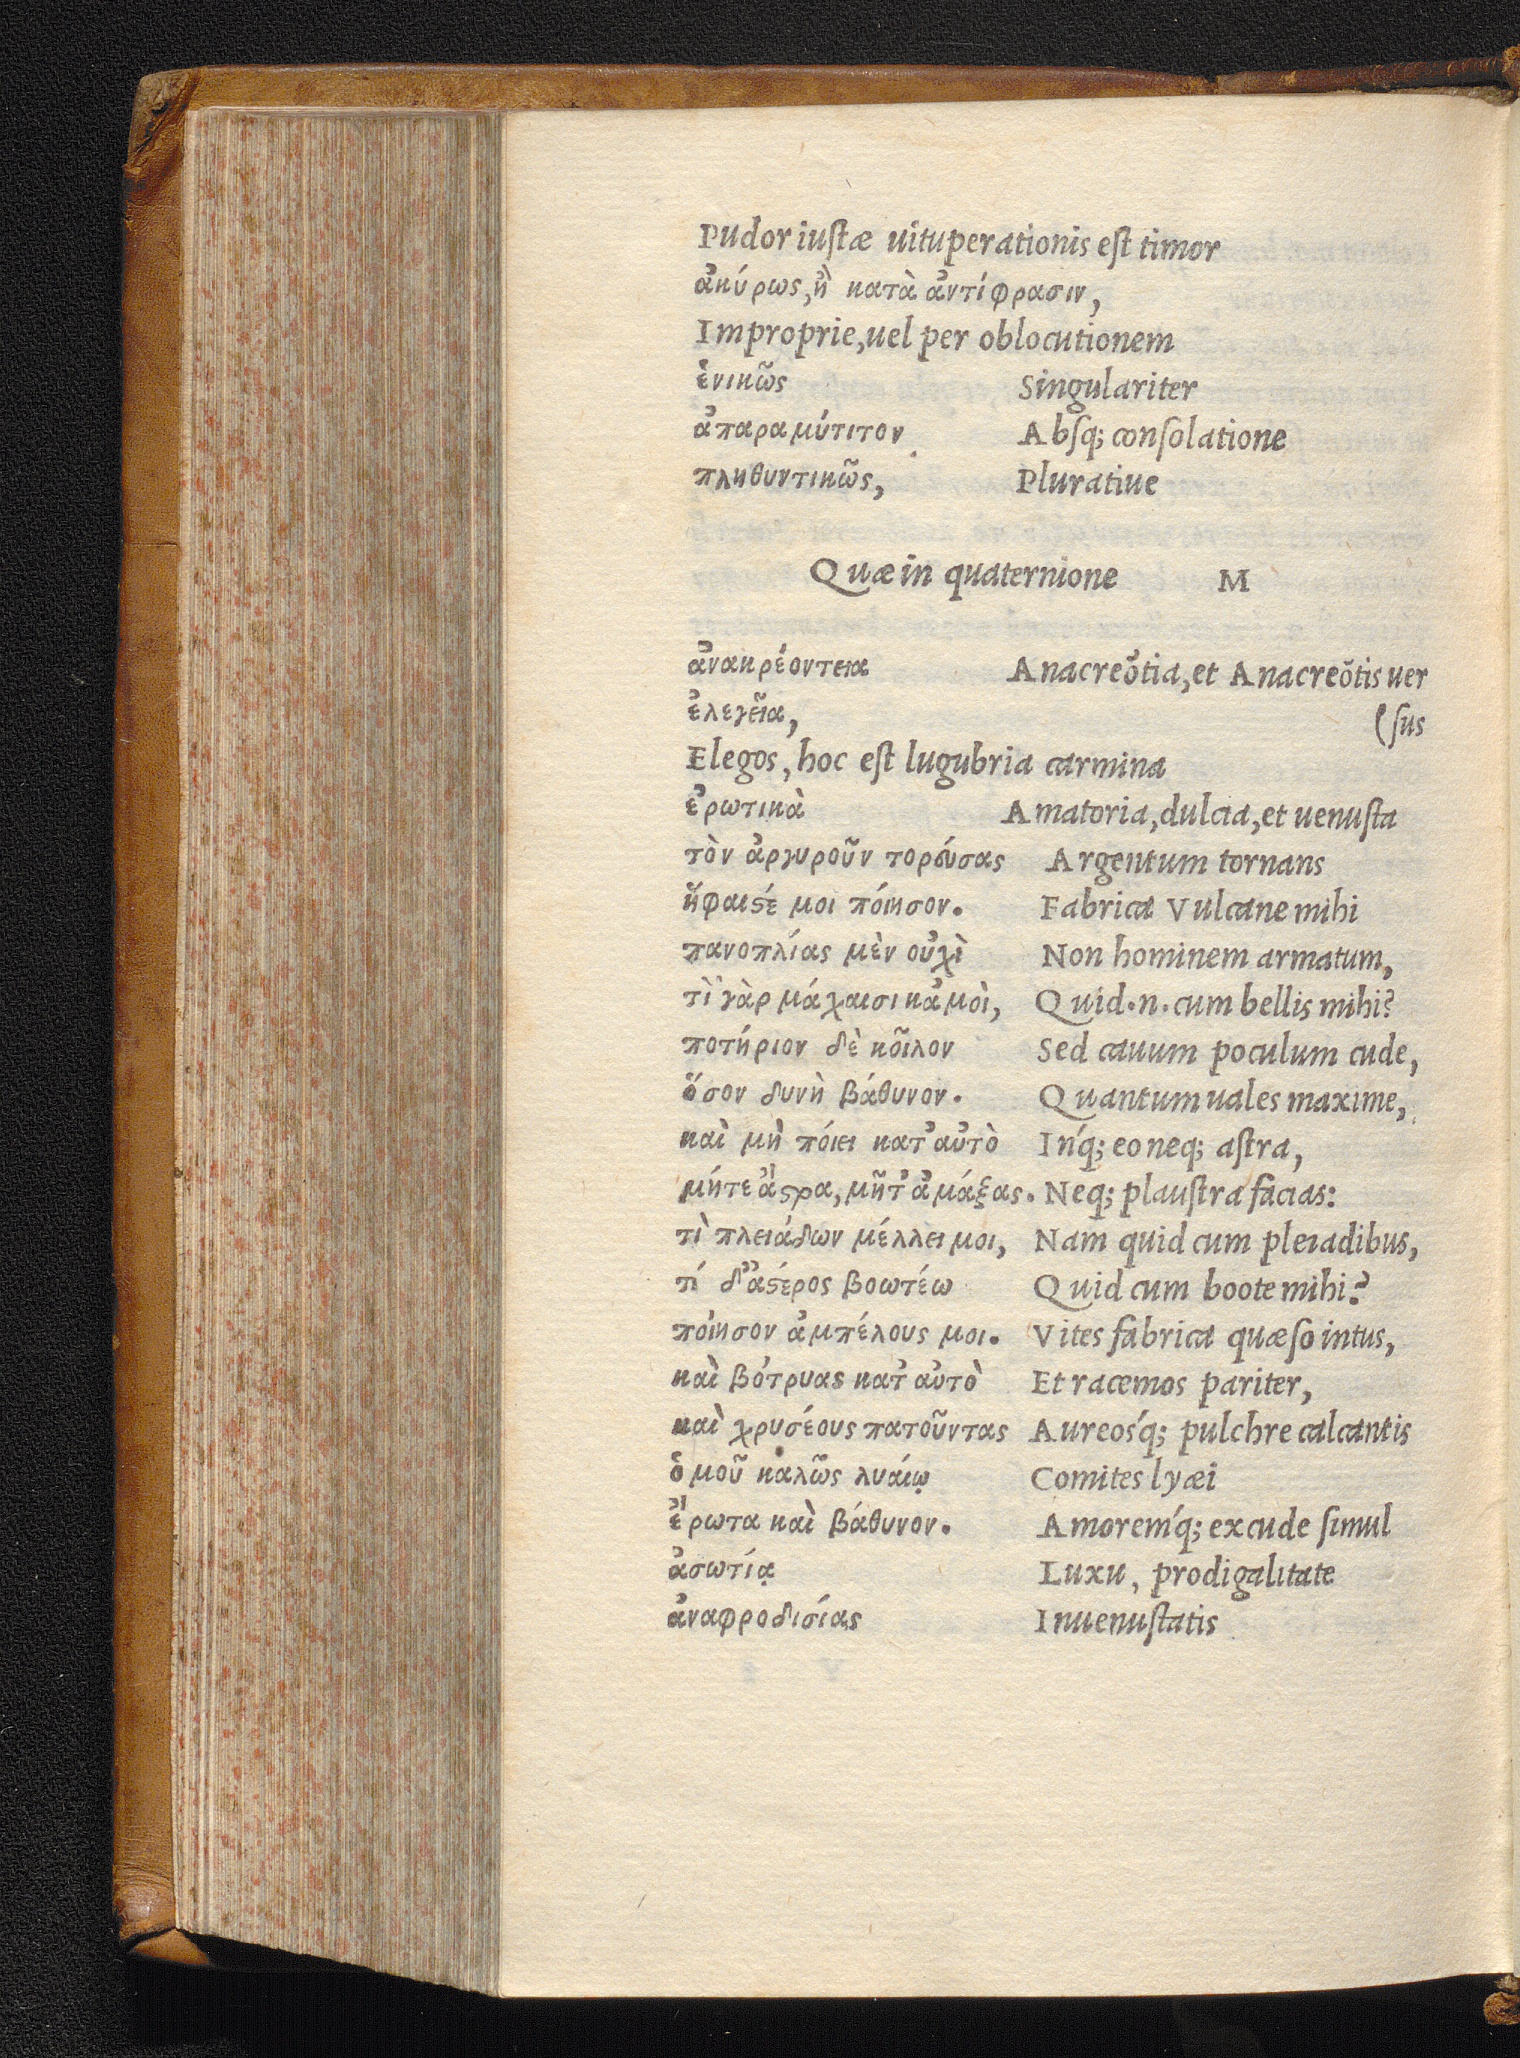 Pudor iustæ uituperationis est timor
ἀκύρως, ἢ κατὰ ἀντίφρασιν,
Improprie, uel per oblocutionem
ἑνικῶς Singulariter
ἀπαραμύτιτον Absq; consolatione
πληθυντικῶς, Pluratiue
Quæ in quaternione M
ἀνακρέοντεια Anacreōtia, et Anacreōtis uer
ἐλεγεῖα, (sus
Elegos, hoc est lugubria carmina
ἐρωτικὰ Amatoria, dulcia, et uenusta
τὸν ἀργυροῦν τορεύσας Argentum tornans
ἥφαιϛέ μοι πόιησον. Fabrica Vulcane mihi
πανοπλίας μὲν οὐχὶ Non hominem armatum,
τὶ γὰρ μάχαισι κἀμοὶ, Quid.n.cum bellis mihi?
ποτήριον δὲ κοῖλον Sed cauum poculum cude,
ὅσον δυνὴ βάθυνον. Quantum uales maxime,
καὶ μὴ πόιει κατ' αὐτὸ Inq́; eo neq; astra,
μήτε ἄϛρα, μῆτ' ἀμάξας. Neq; plaustra facias:
τὶ πλειάδων μέλλει μοι, Nam quid cum pleiadibus,
τί δ' ἀϛέρος βοωτέω Quid cum boote mihi?
πόιησον ἀμπέλους μοι. Vites fabrica quæso intus,
καὶ βότρυας κατ' αὐτὸ Et racemos pariter,
καὶ χρυσέους πατοῦντας Aureosq́; pulchre calcantis
ὁμοῦ καλῶς λυαίῳ Comites lyæi
ἔρωτα καὶ βάθυνον. Amoremq́; excude simul
ἀσωτίᾳ Luxu, prodigalitate
ἀναφροδισίας Inuenustatis